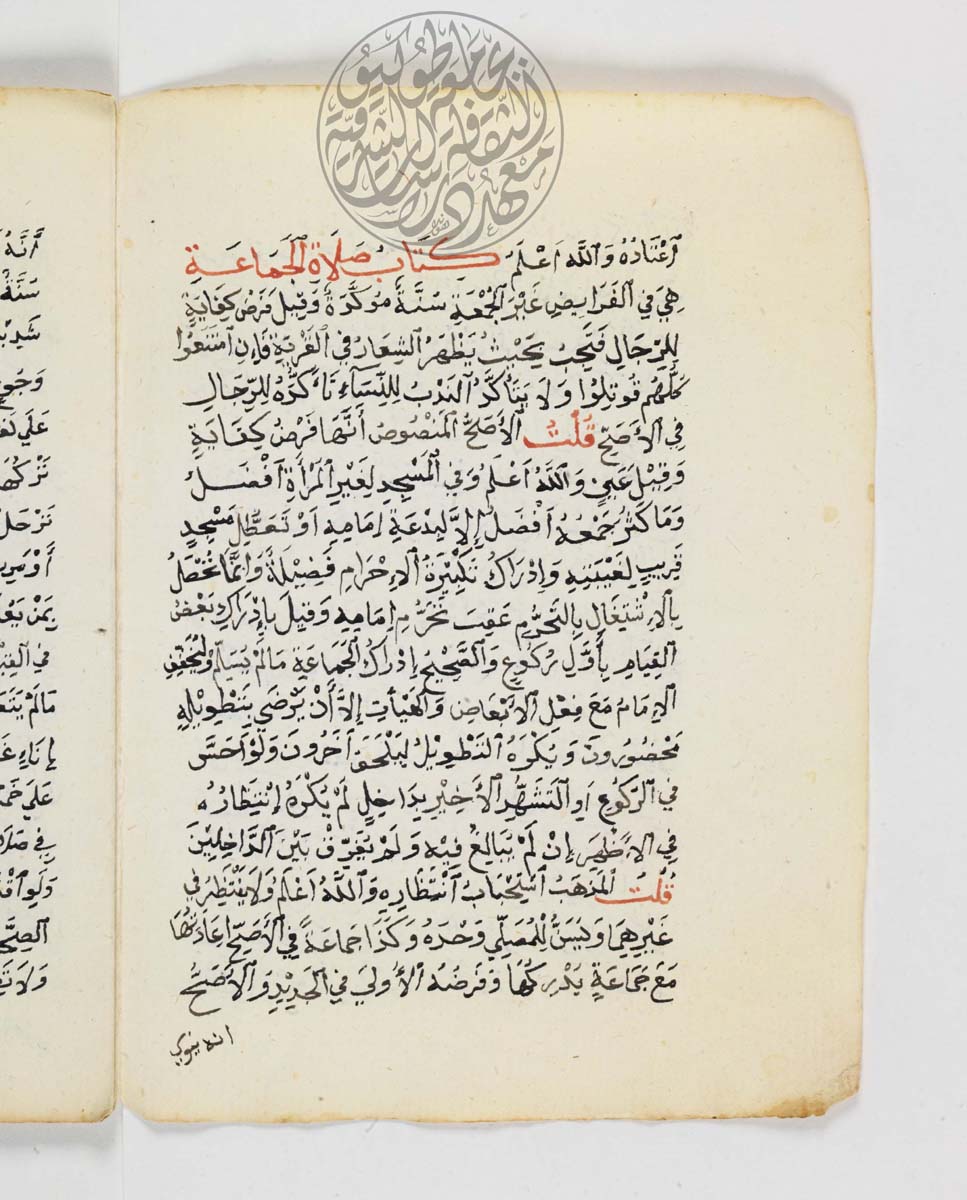 اَعْتَادُهُ وَاللَّهُ اَعْلَمُ كِتَابُ صَلَاةِ الْجَمَاعَةِ
هِيَ فِي الْفَرَايِضِ غَيْرَ الْجُمْعَةِ سُنَّةٌ مُوَكَّدَةٌ وَقِيلَ فَرْضُ كِفَايَةٍ
لِلرِّجَالِ فَتَجِبُ بِحَيْثُ يَظْهَرُ الشِعَارُ فِي الْقَرْيَةِ فَإِنِ امْتَنَعُوا
كُلُّهُمْ قُوتِلُوا وَلَا يَتَأَكَّدُ النَدْبُ لِلنِّسَآءِ تَأَكُّدُهُ لِلرِّجَالِ
فِي الْأَصَحِّ قُلْتُ الْأَصَحُّ الْمَنْصُوصُ أَنَّهَا فَرْضُ كِفَايَةٍ
وَقِيْلَ عَيْنٍ وَاللَّهُ اَعْلَمُ وَفِي الْمَسْجِدِ لِغَيْرِ الْمَرْأَةِ اَفْضَلُ
وَمَا كَثُرَ جَمْعُهُ اَفْضَلُ إِلَّا لِبِدْعَةِ اِمَامِهِ اَوْ تَعَطُّلِ مَسْجِدٍ
قَرِيبٍ لِغَيْبَتِهِ وَإِدْرَاكُ تَكْبِيْرَةِ الْاِحْرَامِ فَضِيْلَةٌ وَاِنَّمَا تَحْصُلُ
بِالْاِشْتِغَالِ بِالتَحَرُّمِ عَقِبَ تَحَرُّمِ اِمَامِهِ وَقِيلَ بِإِدْرَاكِ بَعْضِ
الْقِيَامِ بِأَوَّلِ رُكُوعٍ وَالصَّحِيْحُ إِدْرَاكُ الْجَمَاعَةِ مَا لَمْ يُسَلِّمْ وَلْيُخَفِّفِ
الْاِمَامُ مَعَ فِعْلِ الْاَبْعَاضِ وَالْهَيْأَتِ إِلَّا أَنْ يَرْضَي بِتَطْوِيْلِهِ
مَحْصُوْرُونَ وَيُكْرَهُ التَطْوِيْلُ لِيَلْحَقَ آخَرُونَ وَلَوْ اَحَسَّ
فِي الرُكُوْعِ اَوِ التَشَهُّدِ الْاَخِيْرِ بِدَاخِلٍ لَمْ يُكْرَهْ اِنْتِظَارُهُ
فِي الْاَظْهَرِ إِنْ لَمْ يُبَالِغْ فِيْهِ وَلَمْ يُفَرِّقْ بَيْنَ الدَّاخِلِيْنَ
قُلْتُ الْمَذْهَبُ اسْتِحْبَابُ انْتِظَارِهِ وَاللَّهُ اَعْلَمُ وَلَا يَنْتَظِرُ فِي
غَيْرِهِمَا وَيُسَنُّ لِلْمُصَلِّي وَحْدَهُ وَكَذَا جَمَاعَةً فِي الْأَصَحِّ اِعَادَتُهَا
مَعَ جَمَاعَةٍ يُدْرِكُهَا وَفَرْضُهُ الْأُولَي فِي الْجَدِيْدِ وَالْأَصَحُّ
انه ينوي